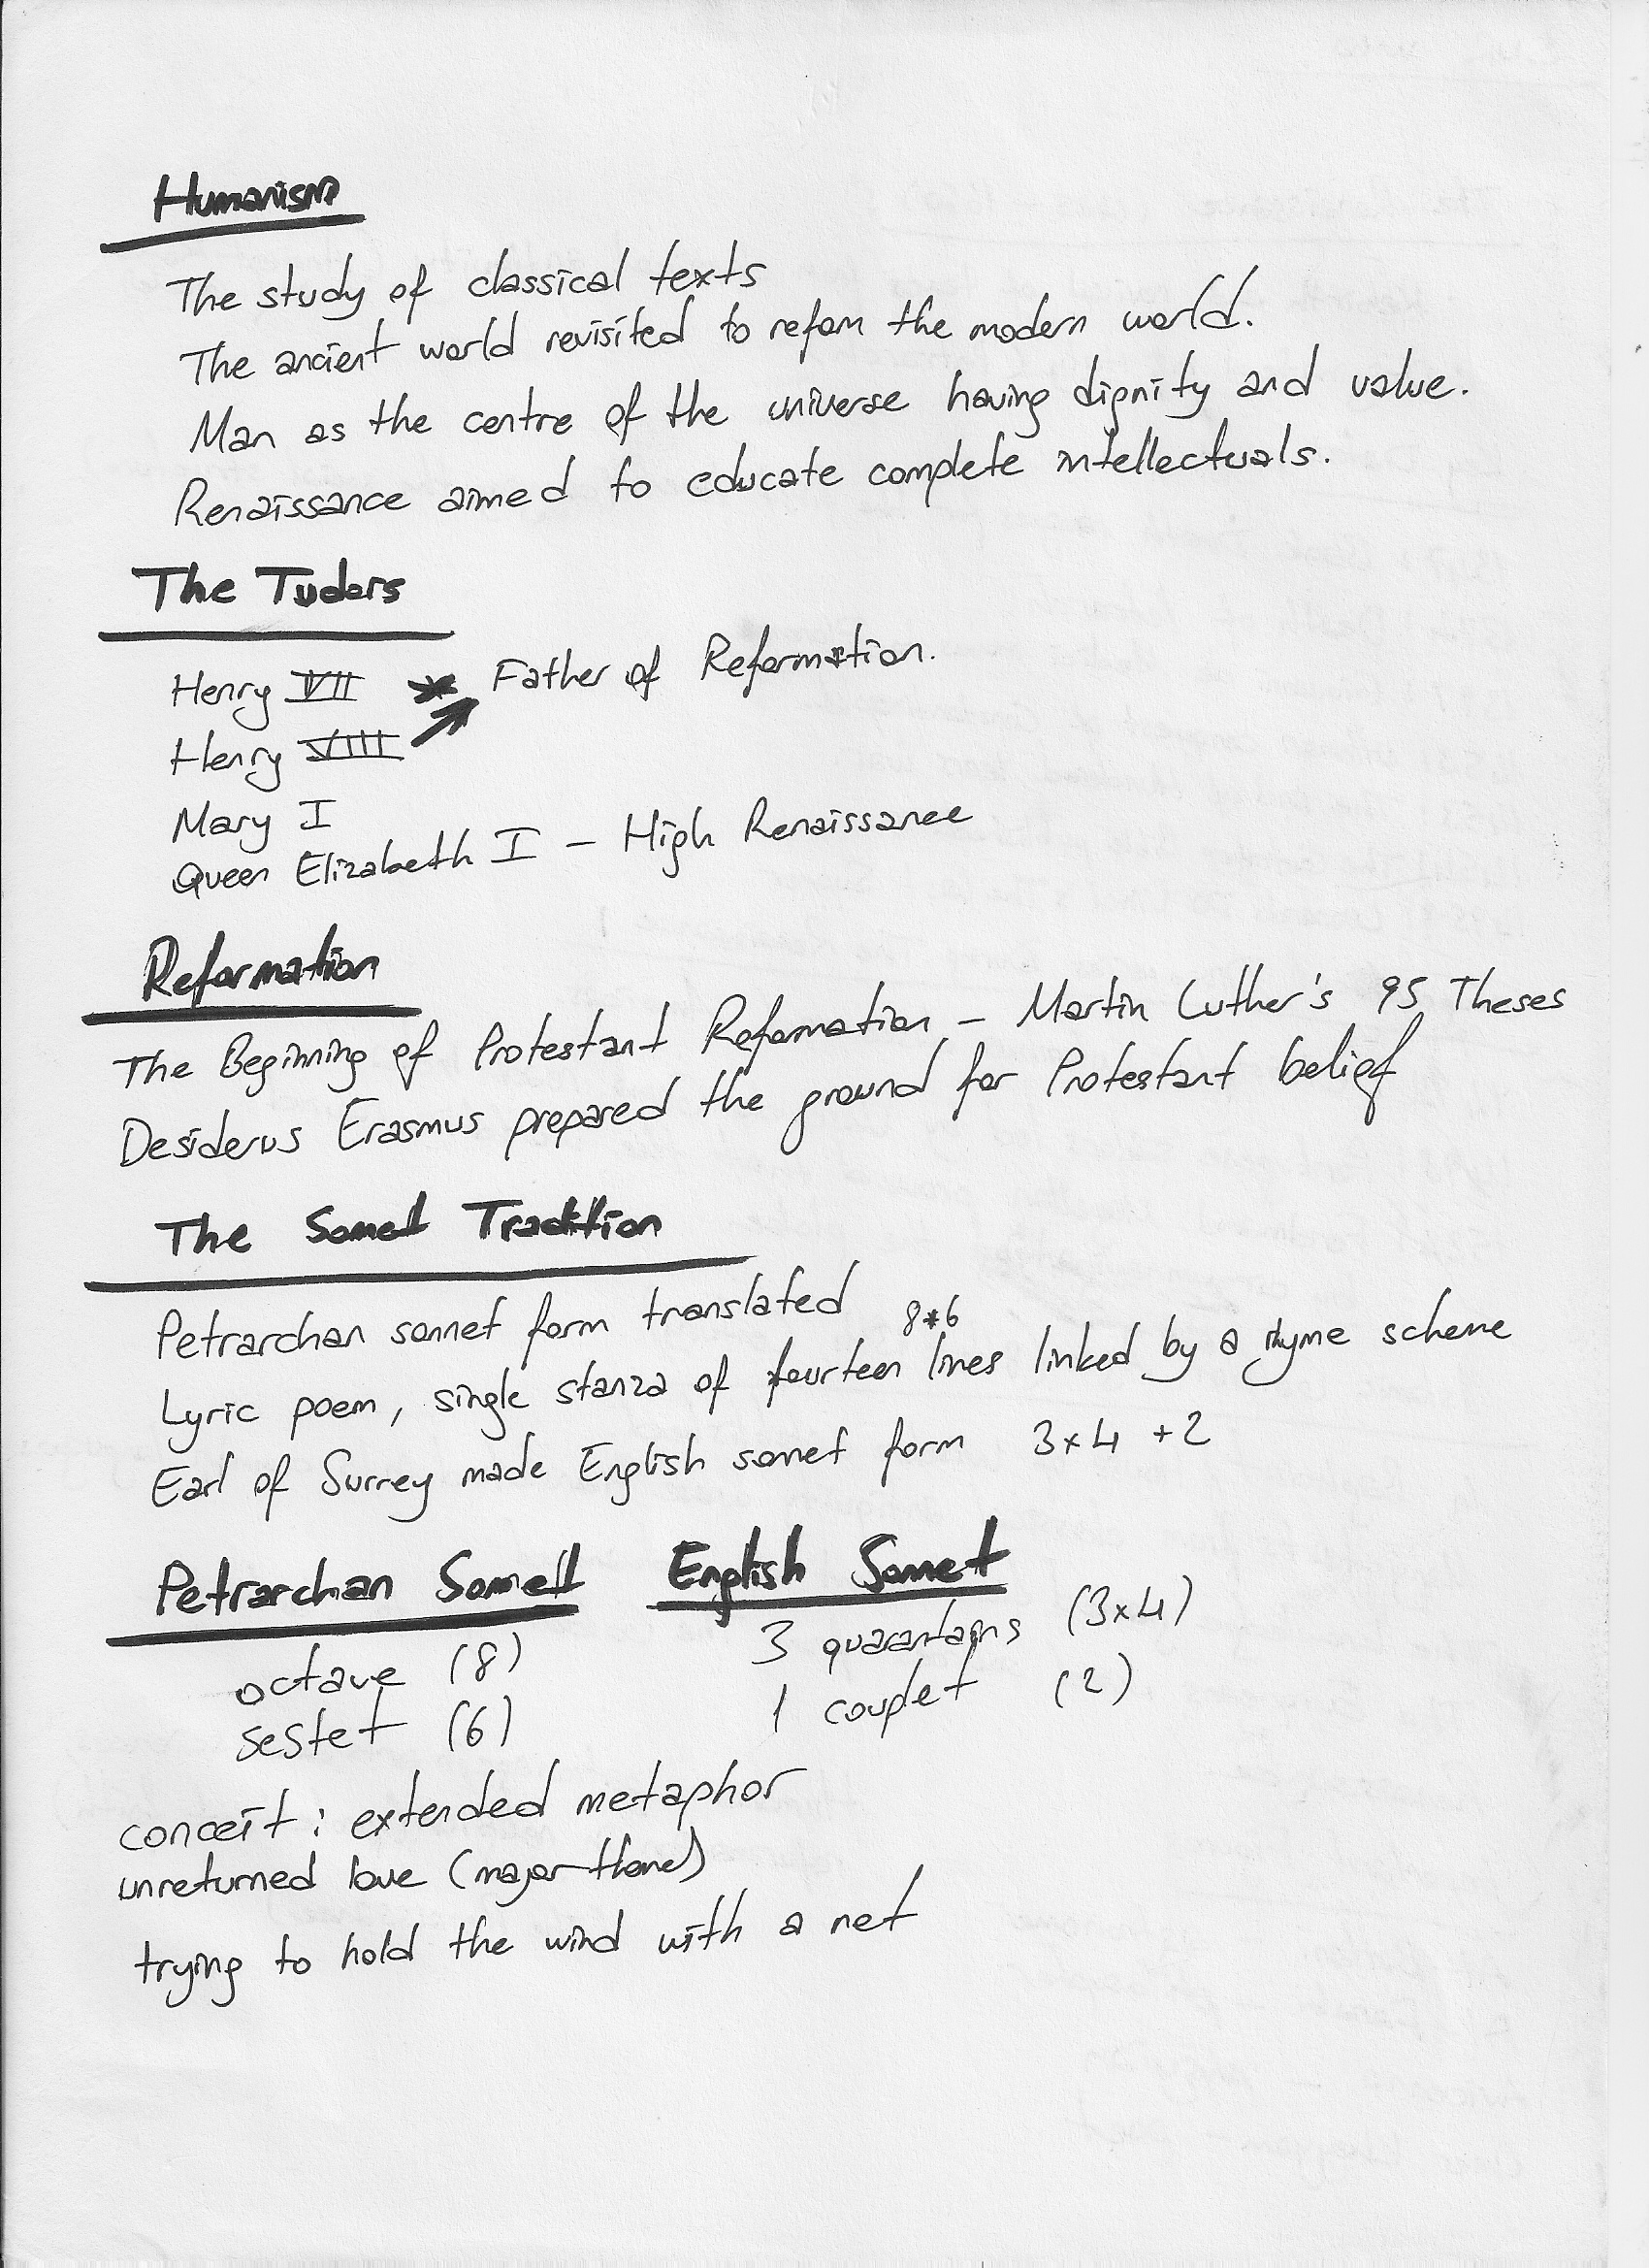 Humanism
The study of classical texts
The ancient world revisited to reform the modern world.
Man as the centre of the universe having dignity and value.
Renaissance aimed to educate complete intellectuals.
The Tudors
Henry VII * Father of Reformation.
Henry VIII
Mary I
Queen Elizabeth I - High Renaissance
Reformation
The Beginning of Protestant Reformation - Martin Luther's 95 Theses
Desiderus Erasmus prepared the ground for Protestant belief
The Sonnet Tradition
Petrarchan sonnet form translated
8+6
Lyric poem, single stanza of fourteen lines linked by a rhyme scheme
Earl of Surrey made English sonnet form 3x4 +2
Petrarchan Sonnet English Sonnet
octave (8) 3 (3x4)
sestet (6) 1 couplet (2)
conceit: extended metaphor
unreturned love (major theme)
trying to hold the wind with a net